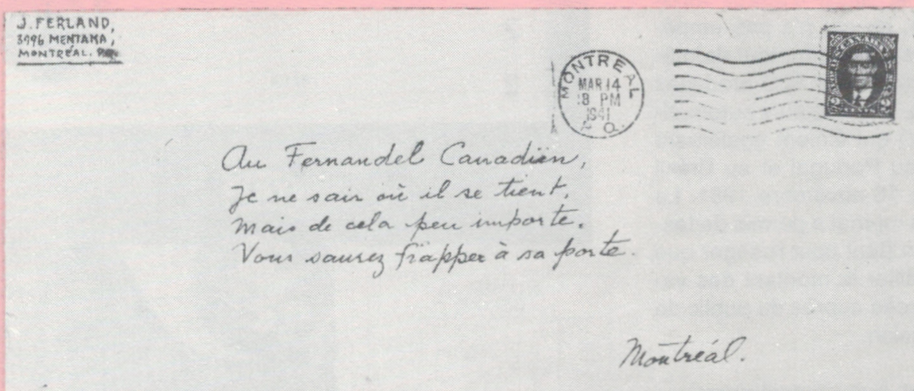 J. FERLAND,
3996 MENTANA,
MONTRÉAL. P.Q.
MONTREAL
MAR 14
8 PM
1941
P. Q.
Au Fernandel Canadien,
Je ne sais où il se tient,
Mais de cela peu importe.
Vous saurez frapper à sa porte.
Montréal.